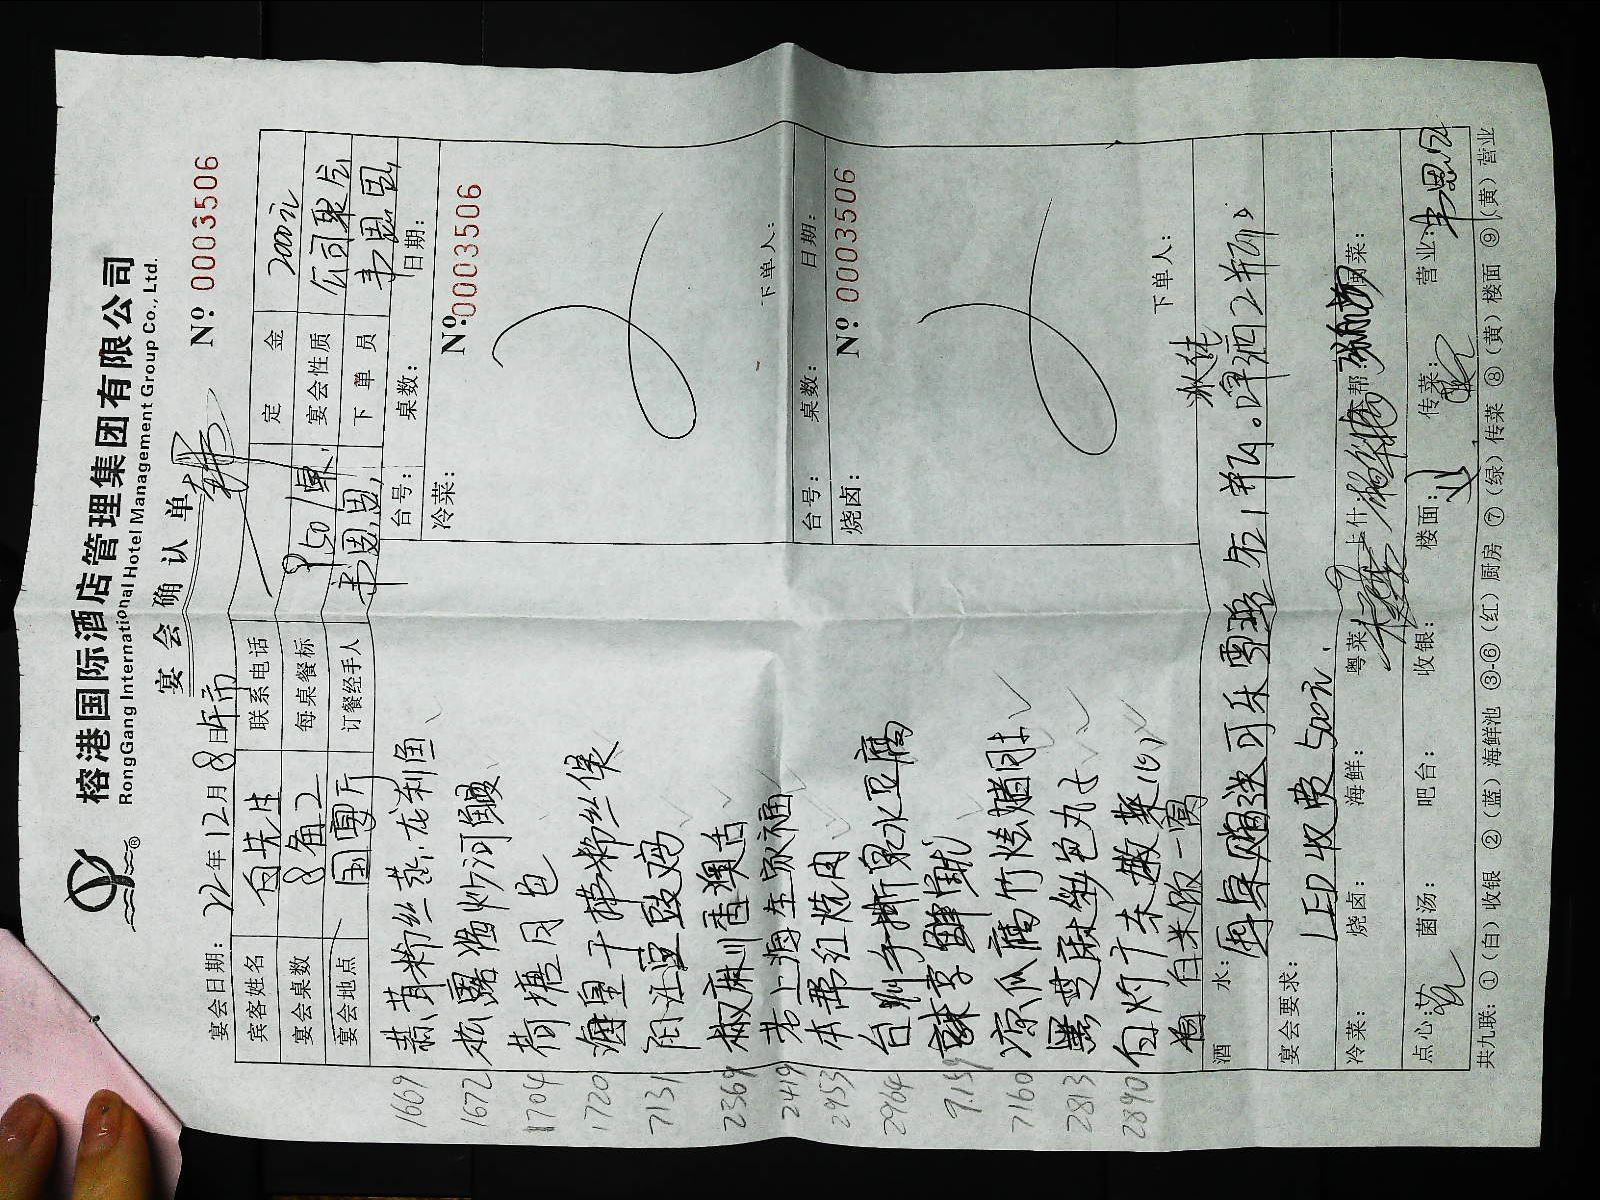 榕港国际酒店管理集团有限公司
RongGang International Hotel Management Group Co., Ltd.
宴会确认单
Nº 0003506
宴会日期：22年12月8日 午市
宾客姓名 白先生 联系电话 定金 2000元
宴会桌数 8备2 每桌餐标 宴会性质 公司聚会
宴会地点 国宴厅 订餐经手人 韦恩恩 下单员 韦恩恩
台号： 桌数： 日期：
冷菜：
Nº 0003506
下单人：
台号： 桌数： 日期：
烧卤：
Nº 0003506
下单人：
1669 蒜茸粉丝蒸龙利鱼
1672 松露酱炒河鳗
1704 荷塘月色
1720 海皇干捞粉丝煲
7131 阳江豆豉鸡
2369 椒麻川香澳舌
2419 老上海全家福
2953 本帮红烧肉
2964 台州手撕泉水豆腐
9.159
7160 凉瓜腐竹浸猪肚
2813 黑芝麻紫色丸子
2890 白灼广东散菜
白米饭一窝
酒水：
可乐雪碧各1瓶。啤酒2瓶
宴会要求： LED收费500元.
冷菜： 烧卤： 海鲜： 粤菜： 上什： 本帮： 厨菜：
点心： 菌汤： 吧台： 收银： 楼面： 传菜： 营业：韦恩恩
共九联：①（白）收银 ②（蓝）海鲜池 ③-⑥（红）厨房 ⑦（绿）传菜 ⑧（黄）楼面 ⑨（黄）营业